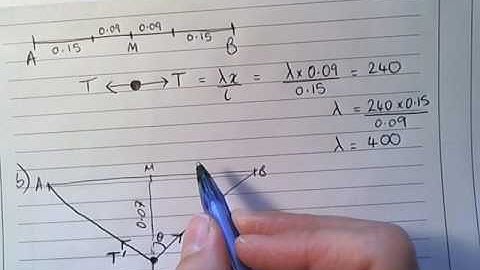 0.09 0.09
0.15 0.15
A M B
T T = λx/l = λ×0.09/0.15 = 240
λ = 240×0.15/0.09
λ = 400
b) A M B
0.07
θ
T'